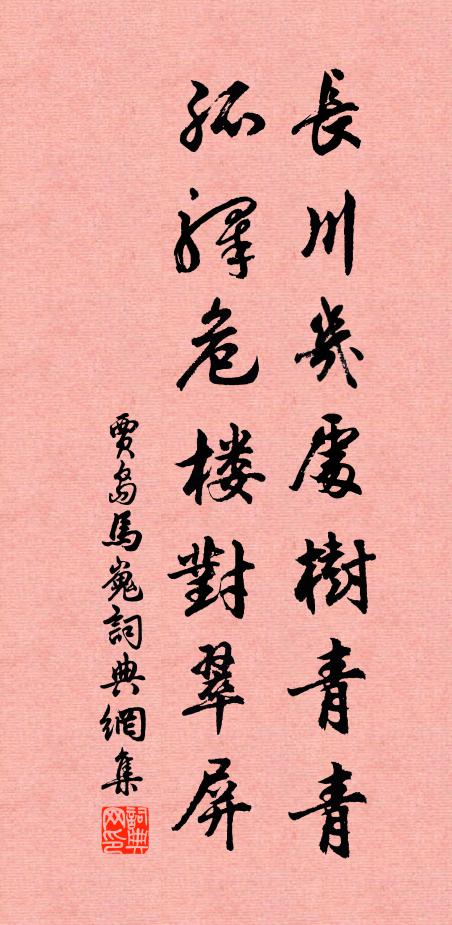 長川幾處樹青青
孤驛危樓對翠屏
賈島馬嵬詞典網集
詞典网印